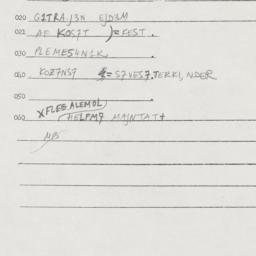 020 G1TRAJ3N EJD3M
021 AF KOS7T )=FEST.
030 PLEMES4N1K
040 KOZ7NS7 = S7VES7.TERKI, NDER
050
XFLEE ALEMOL)
060 HELPM9 MAJNTAT+